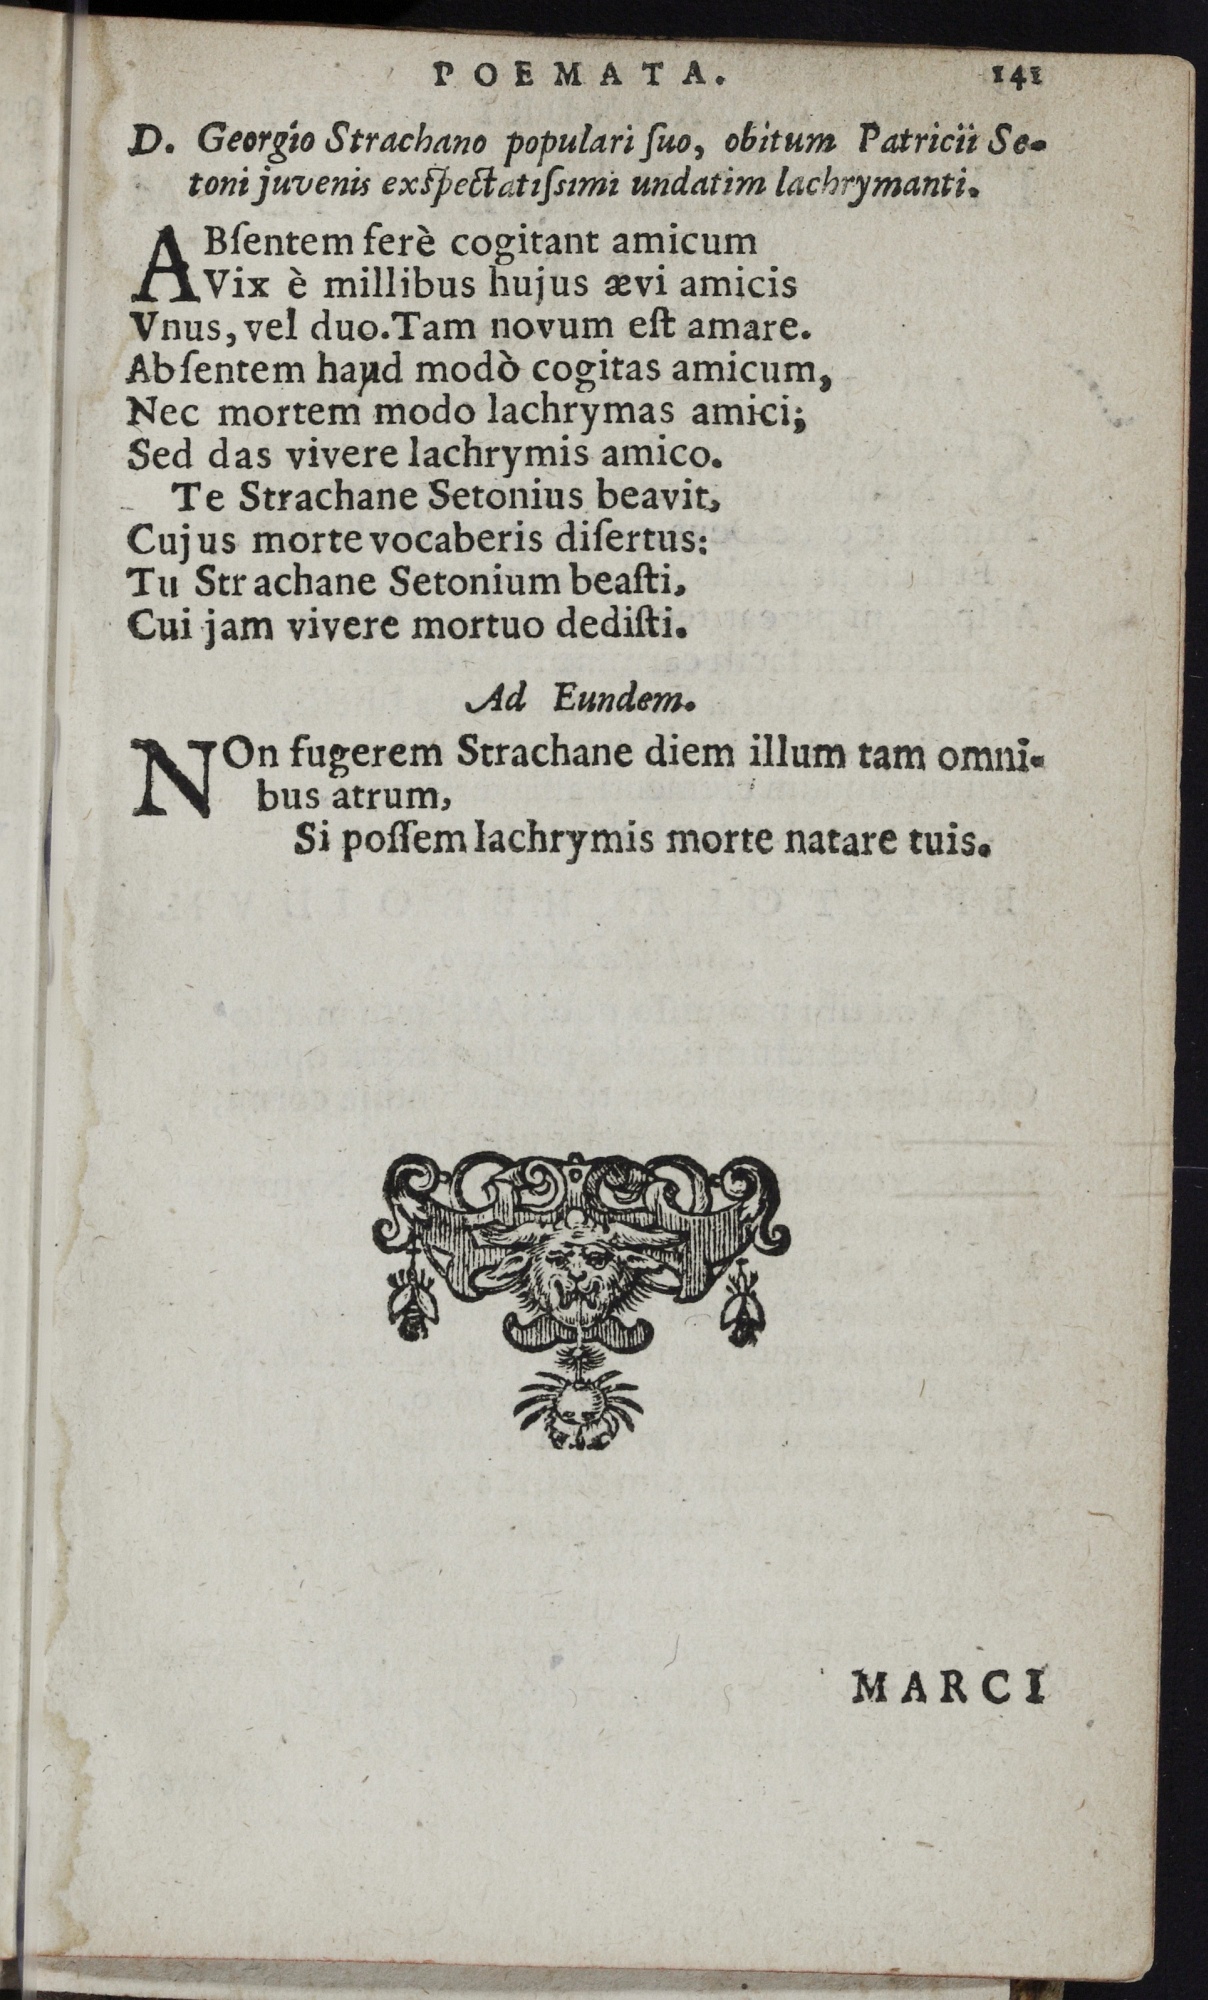 POEMATA. 141
D. Georgio Strachano populari ſuo, obitum Patricii Se-
toni juvenis exſpectatiſsimi undatim lachrymanti.
ABſentem ferè cogitant amicum
Vix è millibus hujus ævi amicis
Vnus, vel duo. Tam novum eſt amare.
Abſentem haud modò cogitas amicum,
Nec mortem modo lachrymas amici;
Sed das vivere lachrymis amico.
Te Strachane Setonius beavit,
Cujus morte vocaberis diſertus:
Tu Strachane Setonium beaſti,
Cui jam vivere mortuo dediſti.
Ad Eundem.
NOn fugerem Strachane diem illum tam omni-
bus atrum,
Si poſſem lachrymis morte natare tuis.
MARCI